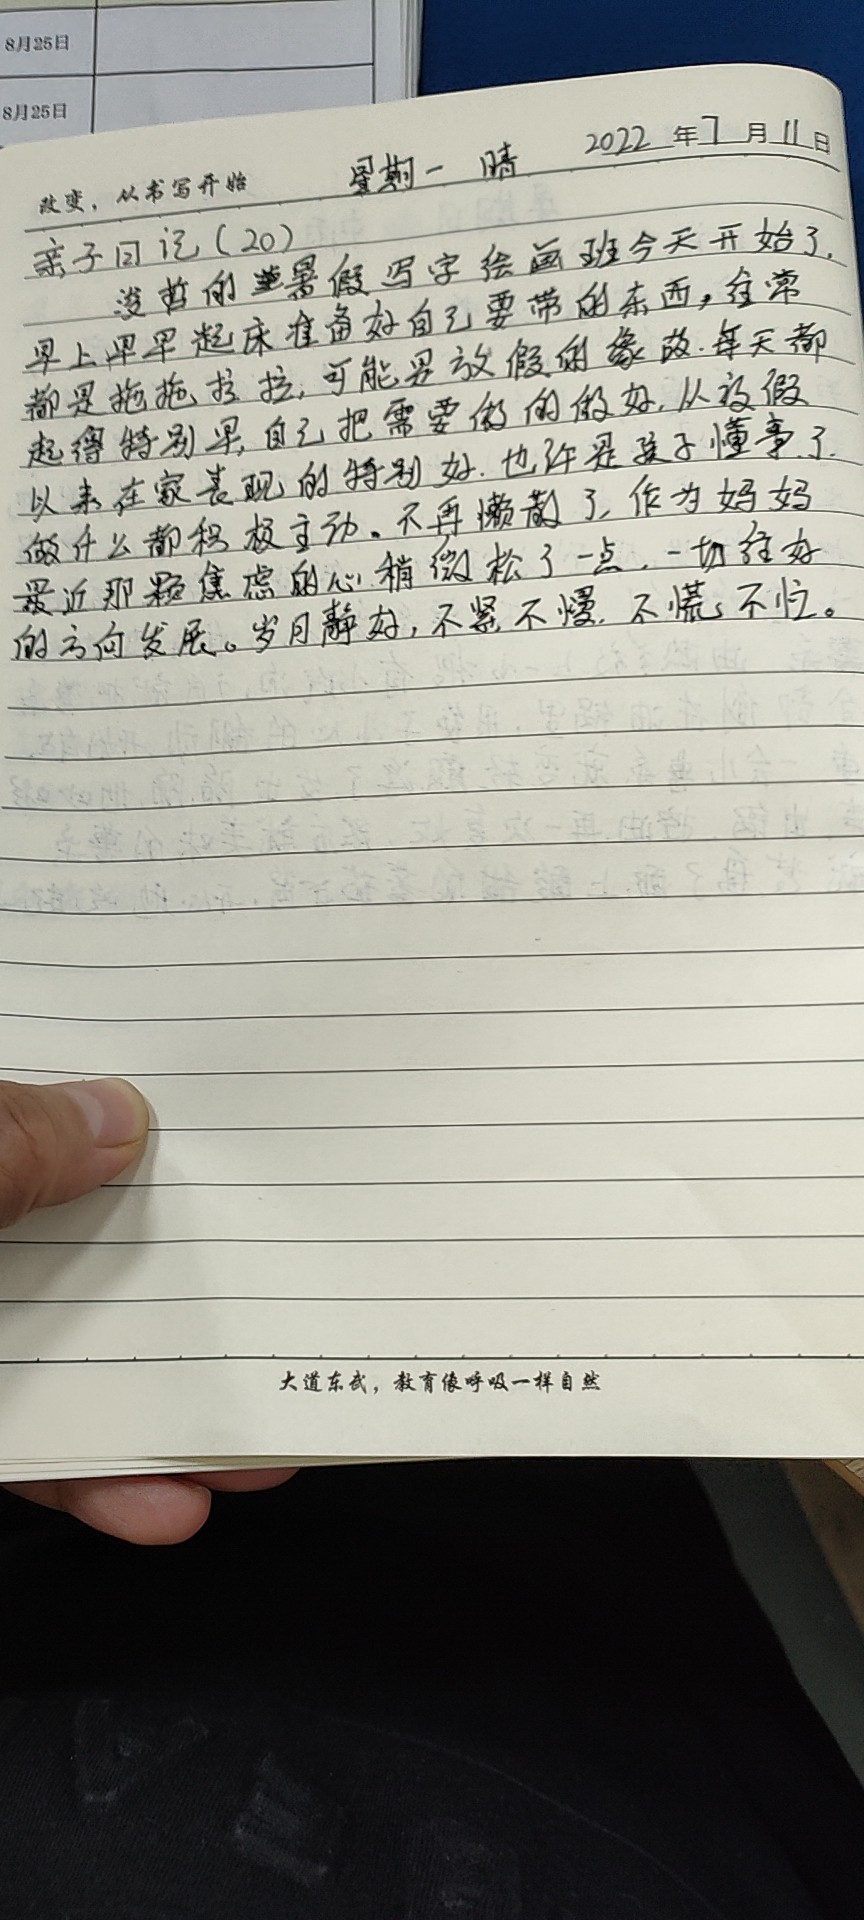 8月25日
8月25日
改变，从书写开始 星期一 晴 2022年7月11日
亲子日记(20)
浚哲的暑假写字绘画班今天开始了.
早上早早起床准备好自己要带的东西，往常
都是拖拖拉拉,可能是放假的缘故.每天都
起得特别早,自己把需要做的做好,从放假
以来在家表现的特别好.也许是孩子懂事了.
做什么都积极主动。不再懒散了,作为妈妈
最近那颗焦虑的心稍微松了一点.一切往好
的方向发展。岁月静好,不紧不慢.不慌不忙。
大道东武，教育像呼吸一样自然